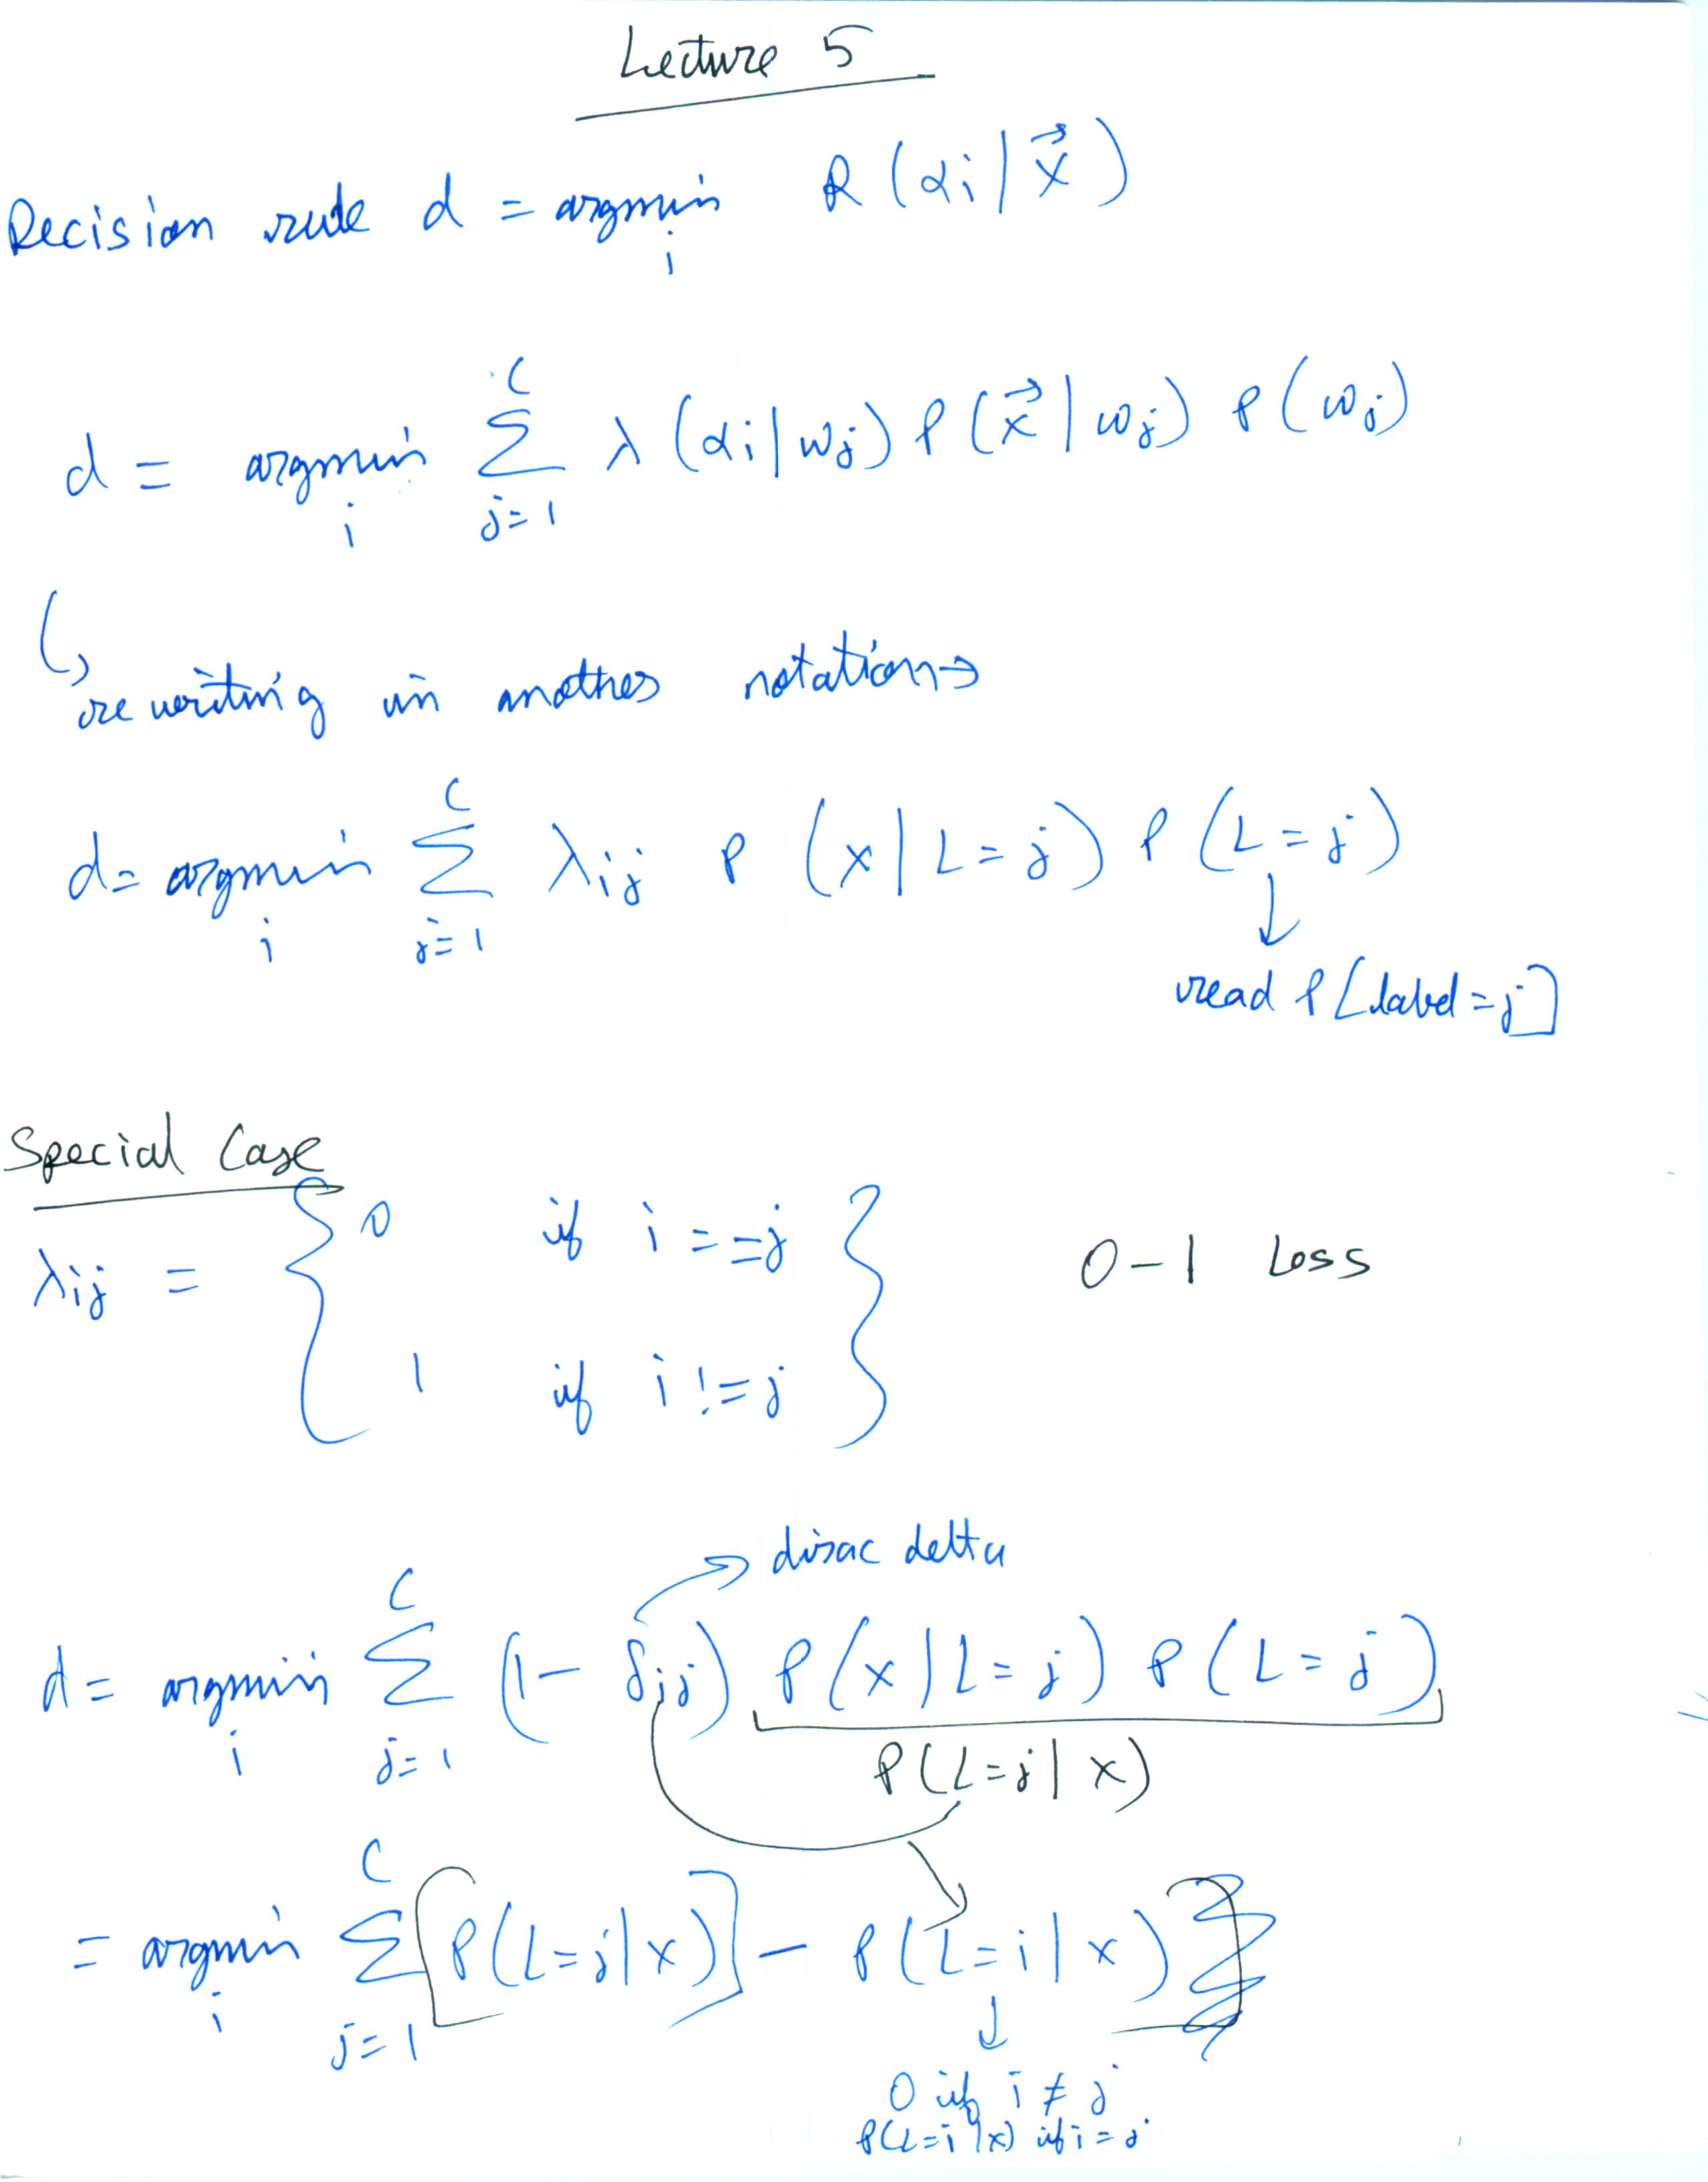 Lecture 5
Decision rule d = argmin_i R(αi | x⃗)
d = argmin_i Σ_{j=1}^{C} λ(αi | ωj) P(x⃗ | ωj) P(ωj)
↳ rewriting in another notation →
d = argmin_i Σ_{j=1}^{C} λij P(x | L = j) P(L = j)
↓
read P[label = j]
Special Case
λij = { 0 if i == j
1 if i != j } 0-1 Loss
→ dirac delta
d = argmin_i Σ_{j=1}^{C} (1 - δij) P(x | L = j) P(L = j)
P(L = j | x)
= argmin_i Σ_{j=1}^{C} [P(L = j | x)] - P(L = i | x)]
↓
0 if i ≠ j
P(L = i | x) if i = j